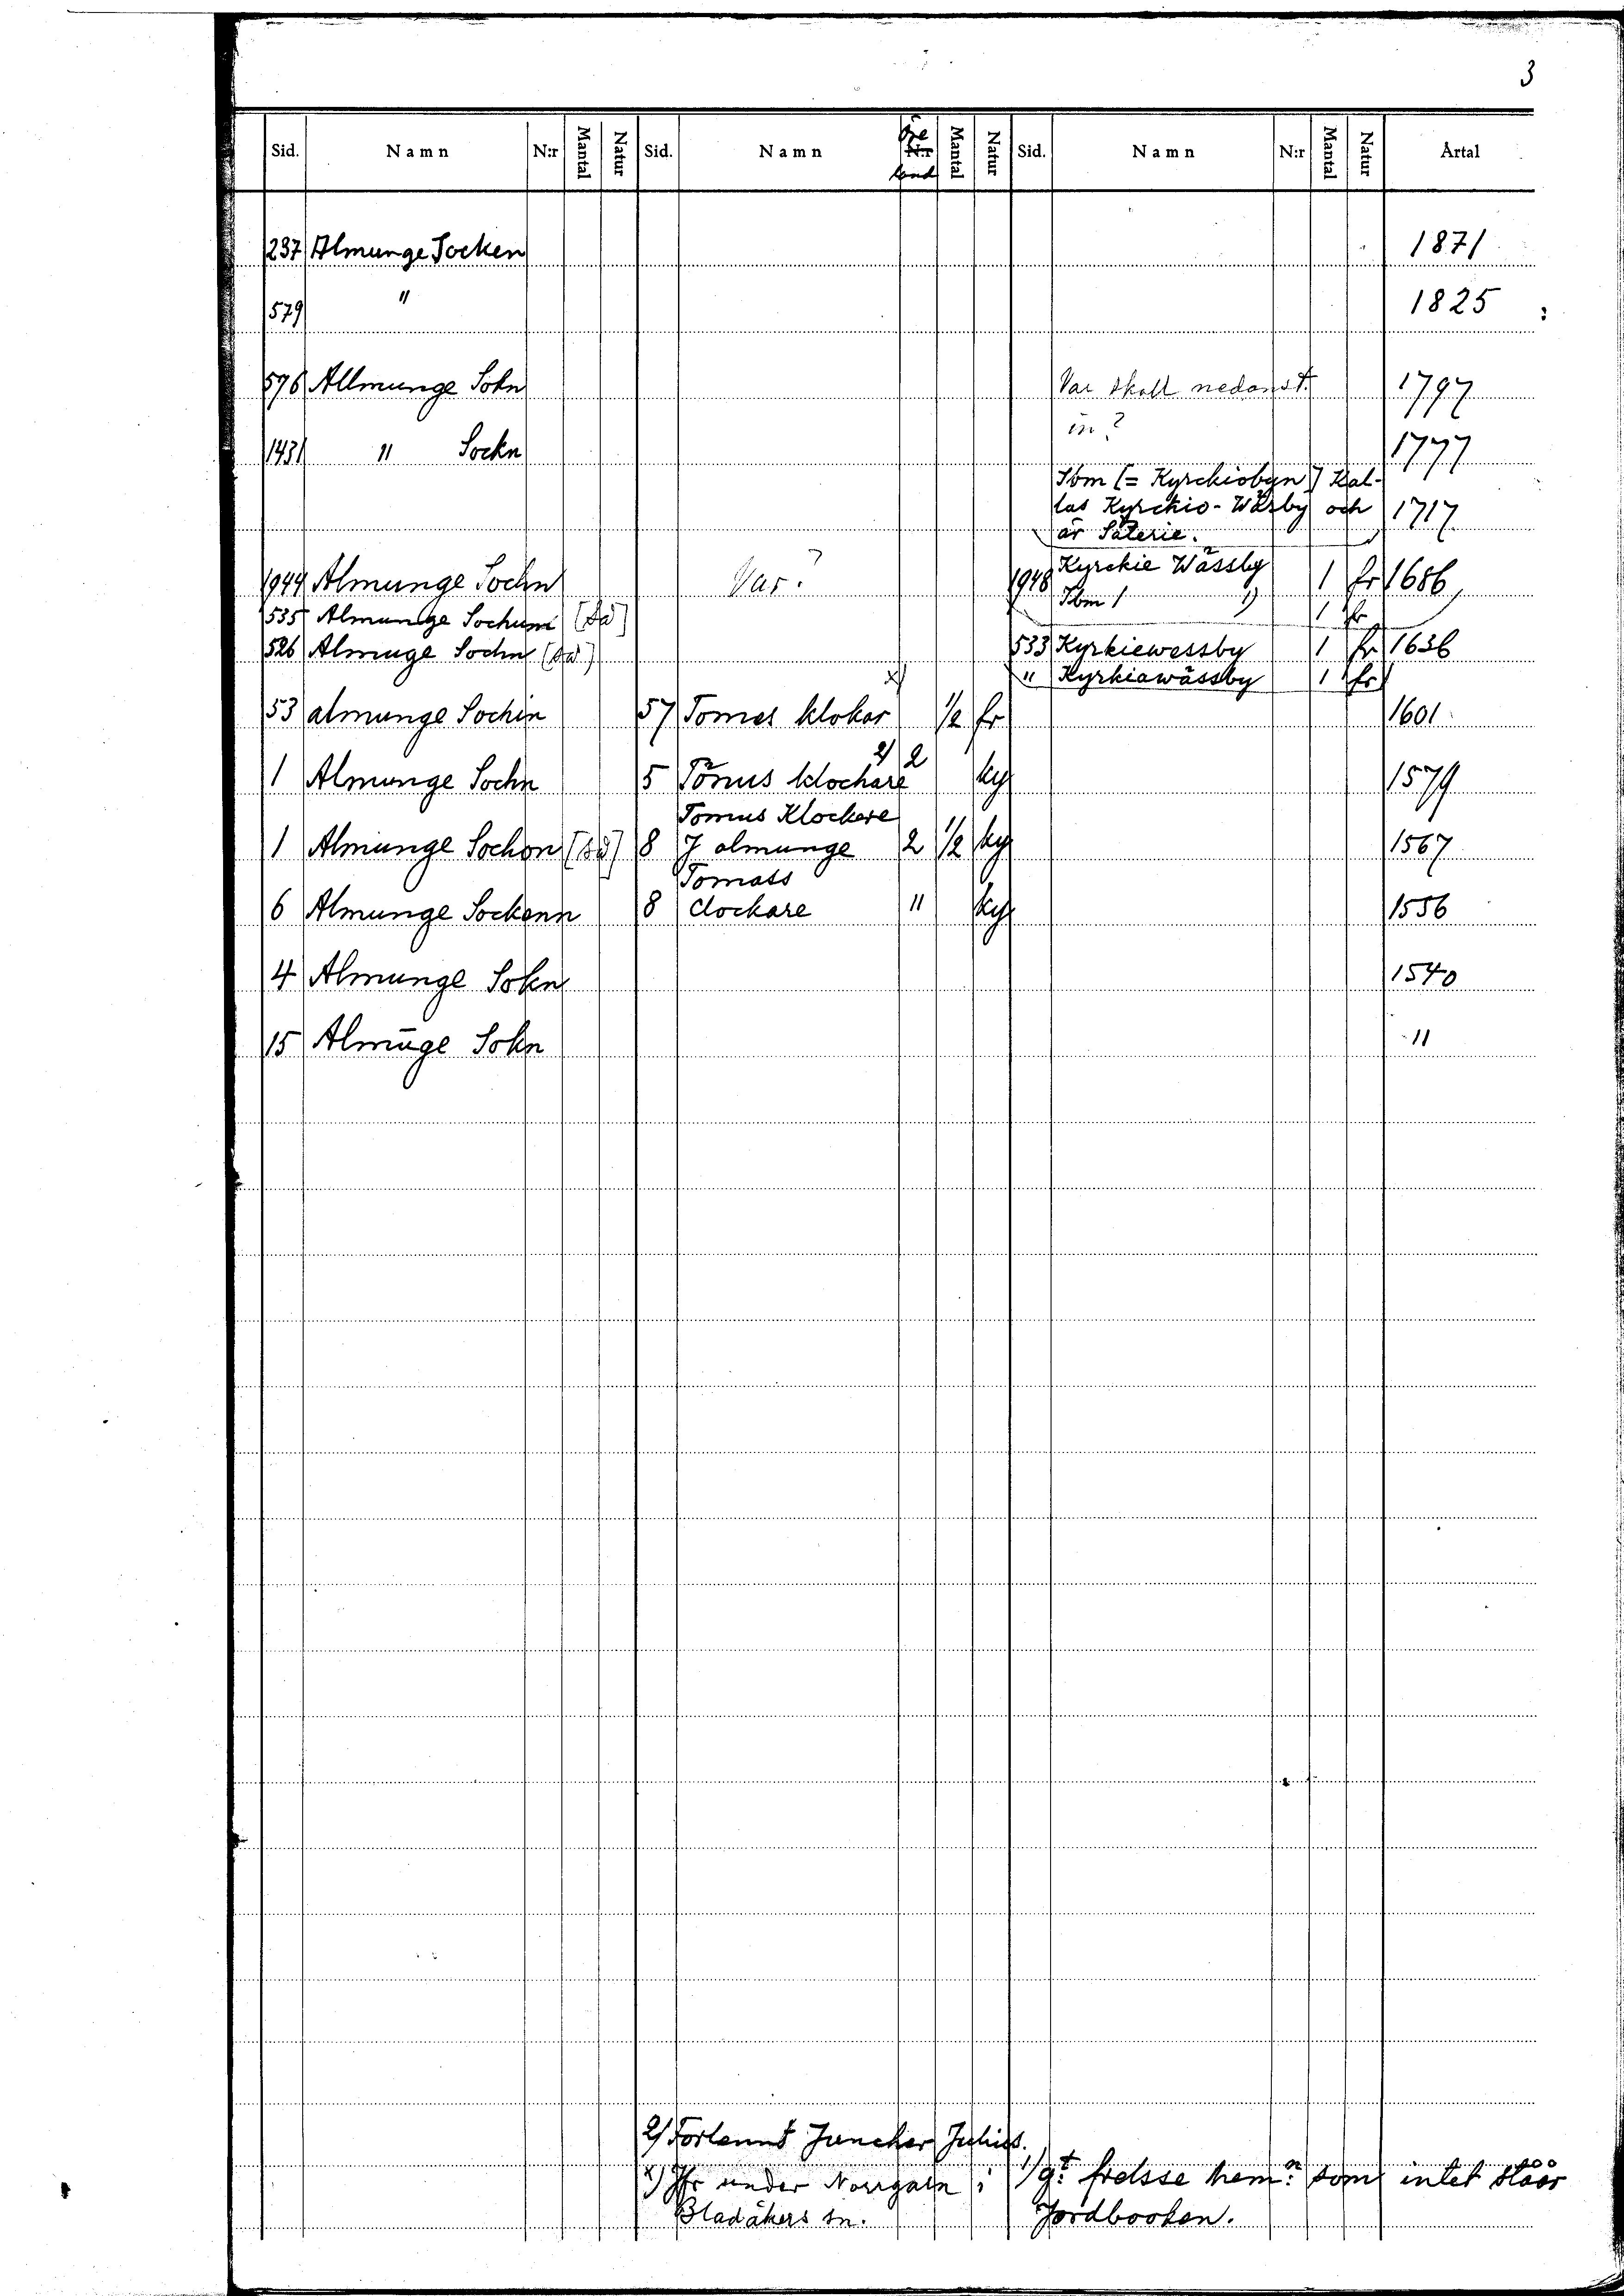 3
Sid. Namn N:r Mantal Natur Sid. Namn N:r öre land Mantal Natur Sid. Namn N:r Mantal Natur Årtal
237 Almunge Socken 1871
579 " 1825
576 Allmunge Sokn Var skall nedanst. 1797
in?
1431 " Sockn 1777
Ibm [= Kyrckiobyn] Kal-
las Kyrckio-Wäsby och 1717
är Säterie.
1944 Almunge Sochn Var? 1948 Kyrckie Wässby 1 fr 1686
Ibm 1 1) 1 fr
535 Almunge Sochum [Sä]
526 Almuge Sochn (Sä) 533 Kyrkiewessby 1 fr 1636
" Kyrkiawässby 1 fr
53 almunge Sochin 57 Tomes klokar x) 1/2 fr 1601
1 Almunge Sochn 5 Tõmus klochare 2) 2 ky 1579
Tomus Klockere
1 Almunge Sochon [Sä] 8 J almunge 2 1/2 ky 1567
Tomass
6 Almunge Sockenn 8 clockare " ky 1556
4 Almunge Sokn 1540
15 Almūge Sokn "
2) Forlennt Juncher Julius.
x) Jfr under Norrgarn i
Bladåkers sn.
1) gt frelsse hemn som intet stöör
Jordbooken.